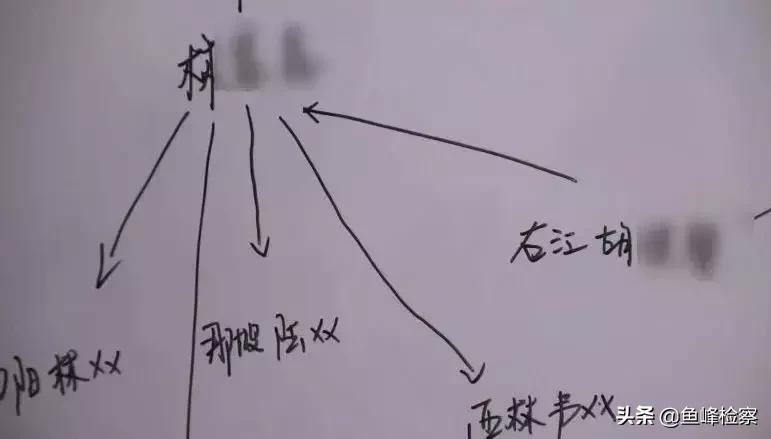 右江胡
那坡陈xx
阳林xx
西林韦xx
头条 @鱼峰检察